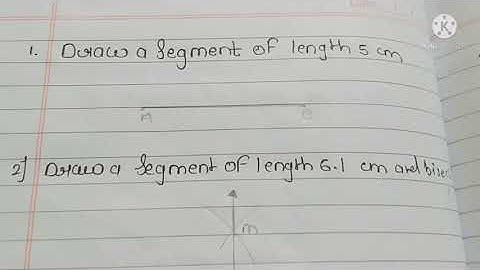 1. Draw a segment of length 5 cm
A B
2] Draw a segment of length 6.1 cm and bise
m